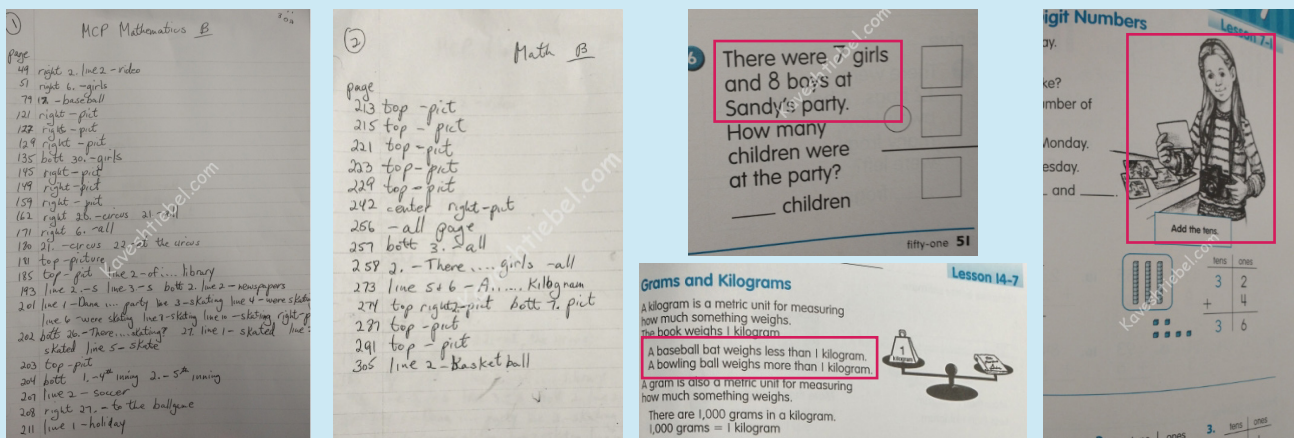 1
MCP Mathematics B
page
49 right 2. line 2 - video
51 right 6. - girls
79 12. - baseball
121 right - pict
127 right - pict
129 right - pict
135 bott 30. - girls
145 right - pict
149 right - pict
159 right - pict
162 right 20. - circus 21. - all
171 right 6. - all
180 21. - circus 22. - at the circus
181 top - picture
185 top - pict line 2 - of .... library
193 line 2. - 5 line 3 - 5 bott 2. line 2 - newspapers
201 line 1 - Dana .... party line 3 - skating line 4 - were skating
line 6 - were skating line 7 - skating line 10 - skating right - p
202 bott 26. - There .... skating? 27. line 1 - skated line
skated line 5 - skate
203 top - pict
204 bott 1. - 4th inning 2. - 5th inning
207 line 2 - soccer
208 right 27. - to the ballgame
211 line 1 - holiday
Kaveshtiebel.com
2
Math B
page
213 top - pict
215 top - pict
221 top - pict
223 top - pict
229 top - pict
242 center right - pict
256 - all page
257 bott 3. - all
258 2. - There .... girls - all
273 line 5 + 6 - A ...... kilogram
274 top right 2 - pict bott 7. pict
287 top - pict
291 top - pict
305 line 2 - Basketball
Kaveshtiebel.com
6
There were 7 girls
and 8 boys at
Sandy's party.
How many
children were
at the party?
____ children
fifty-one 51
Kaveshtiebel.com
Grams and Kilograms
Lesson 14-7
A kilogram is a metric unit for measuring
how much something weighs.
The book weighs 1 kilogram.
A baseball bat weighs less than 1 kilogram.
A bowling ball weighs more than 1 kilogram.
A gram is also a metric unit for measuring
how much something weighs.
There are 1,000 grams in a kilogram.
1,000 grams = 1 kilogram
1
kilogram
igit Numbers
Lesson 7-1
ay.
ke?
umber of
Monday.
esday.
__ and ____.
Add the tens.
tens ones
3 2
+ 4
3 6
3. tens ones
ones
Kaveshtiebel.com